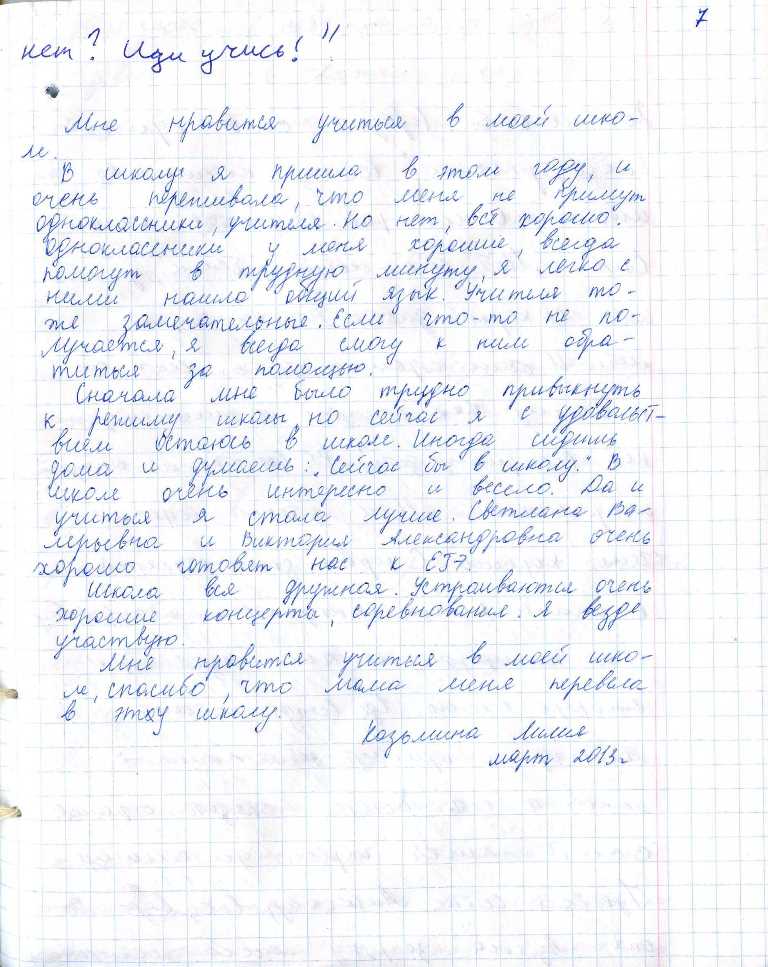 7
нет? Иди учись!"
Мне нравится учиться в моей шко-
ле.
В школу я пришла в этом году, и
очень переживала, что меня не примут
одноклассники, учителя. Но нет, всё хорошо.
Одноклассники у меня хорошие, всегда
помогут в трудную минуту, я легко с
ними нашла общий язык. Учителя то-
же замечательные. Если что-то не по-
лучается, я всегда смогу к ним обра-
титься за помощью.
Сначала мне было трудно привыкнуть
к режиму школы, но сейчас я с удовольст-
вием остаюсь в школе. Иногда сидишь
дома и думаешь: „Сейчас бы в школу." В
школе очень интересно и весело. Да и
учиться я стала лучше. Светлана Ва-
лерьевна и Виктория Александровна очень
хорошо готовят нас к ЕГЭ.
Школа вся дружная. Устраиваются очень
хорошие концерты, соревнования. Я везде
участвую.
Мне нравится учиться в моей шко-
ле, спасибо, что мама меня перевела
в эту школу.
Козьмина Лилия
март 2013г